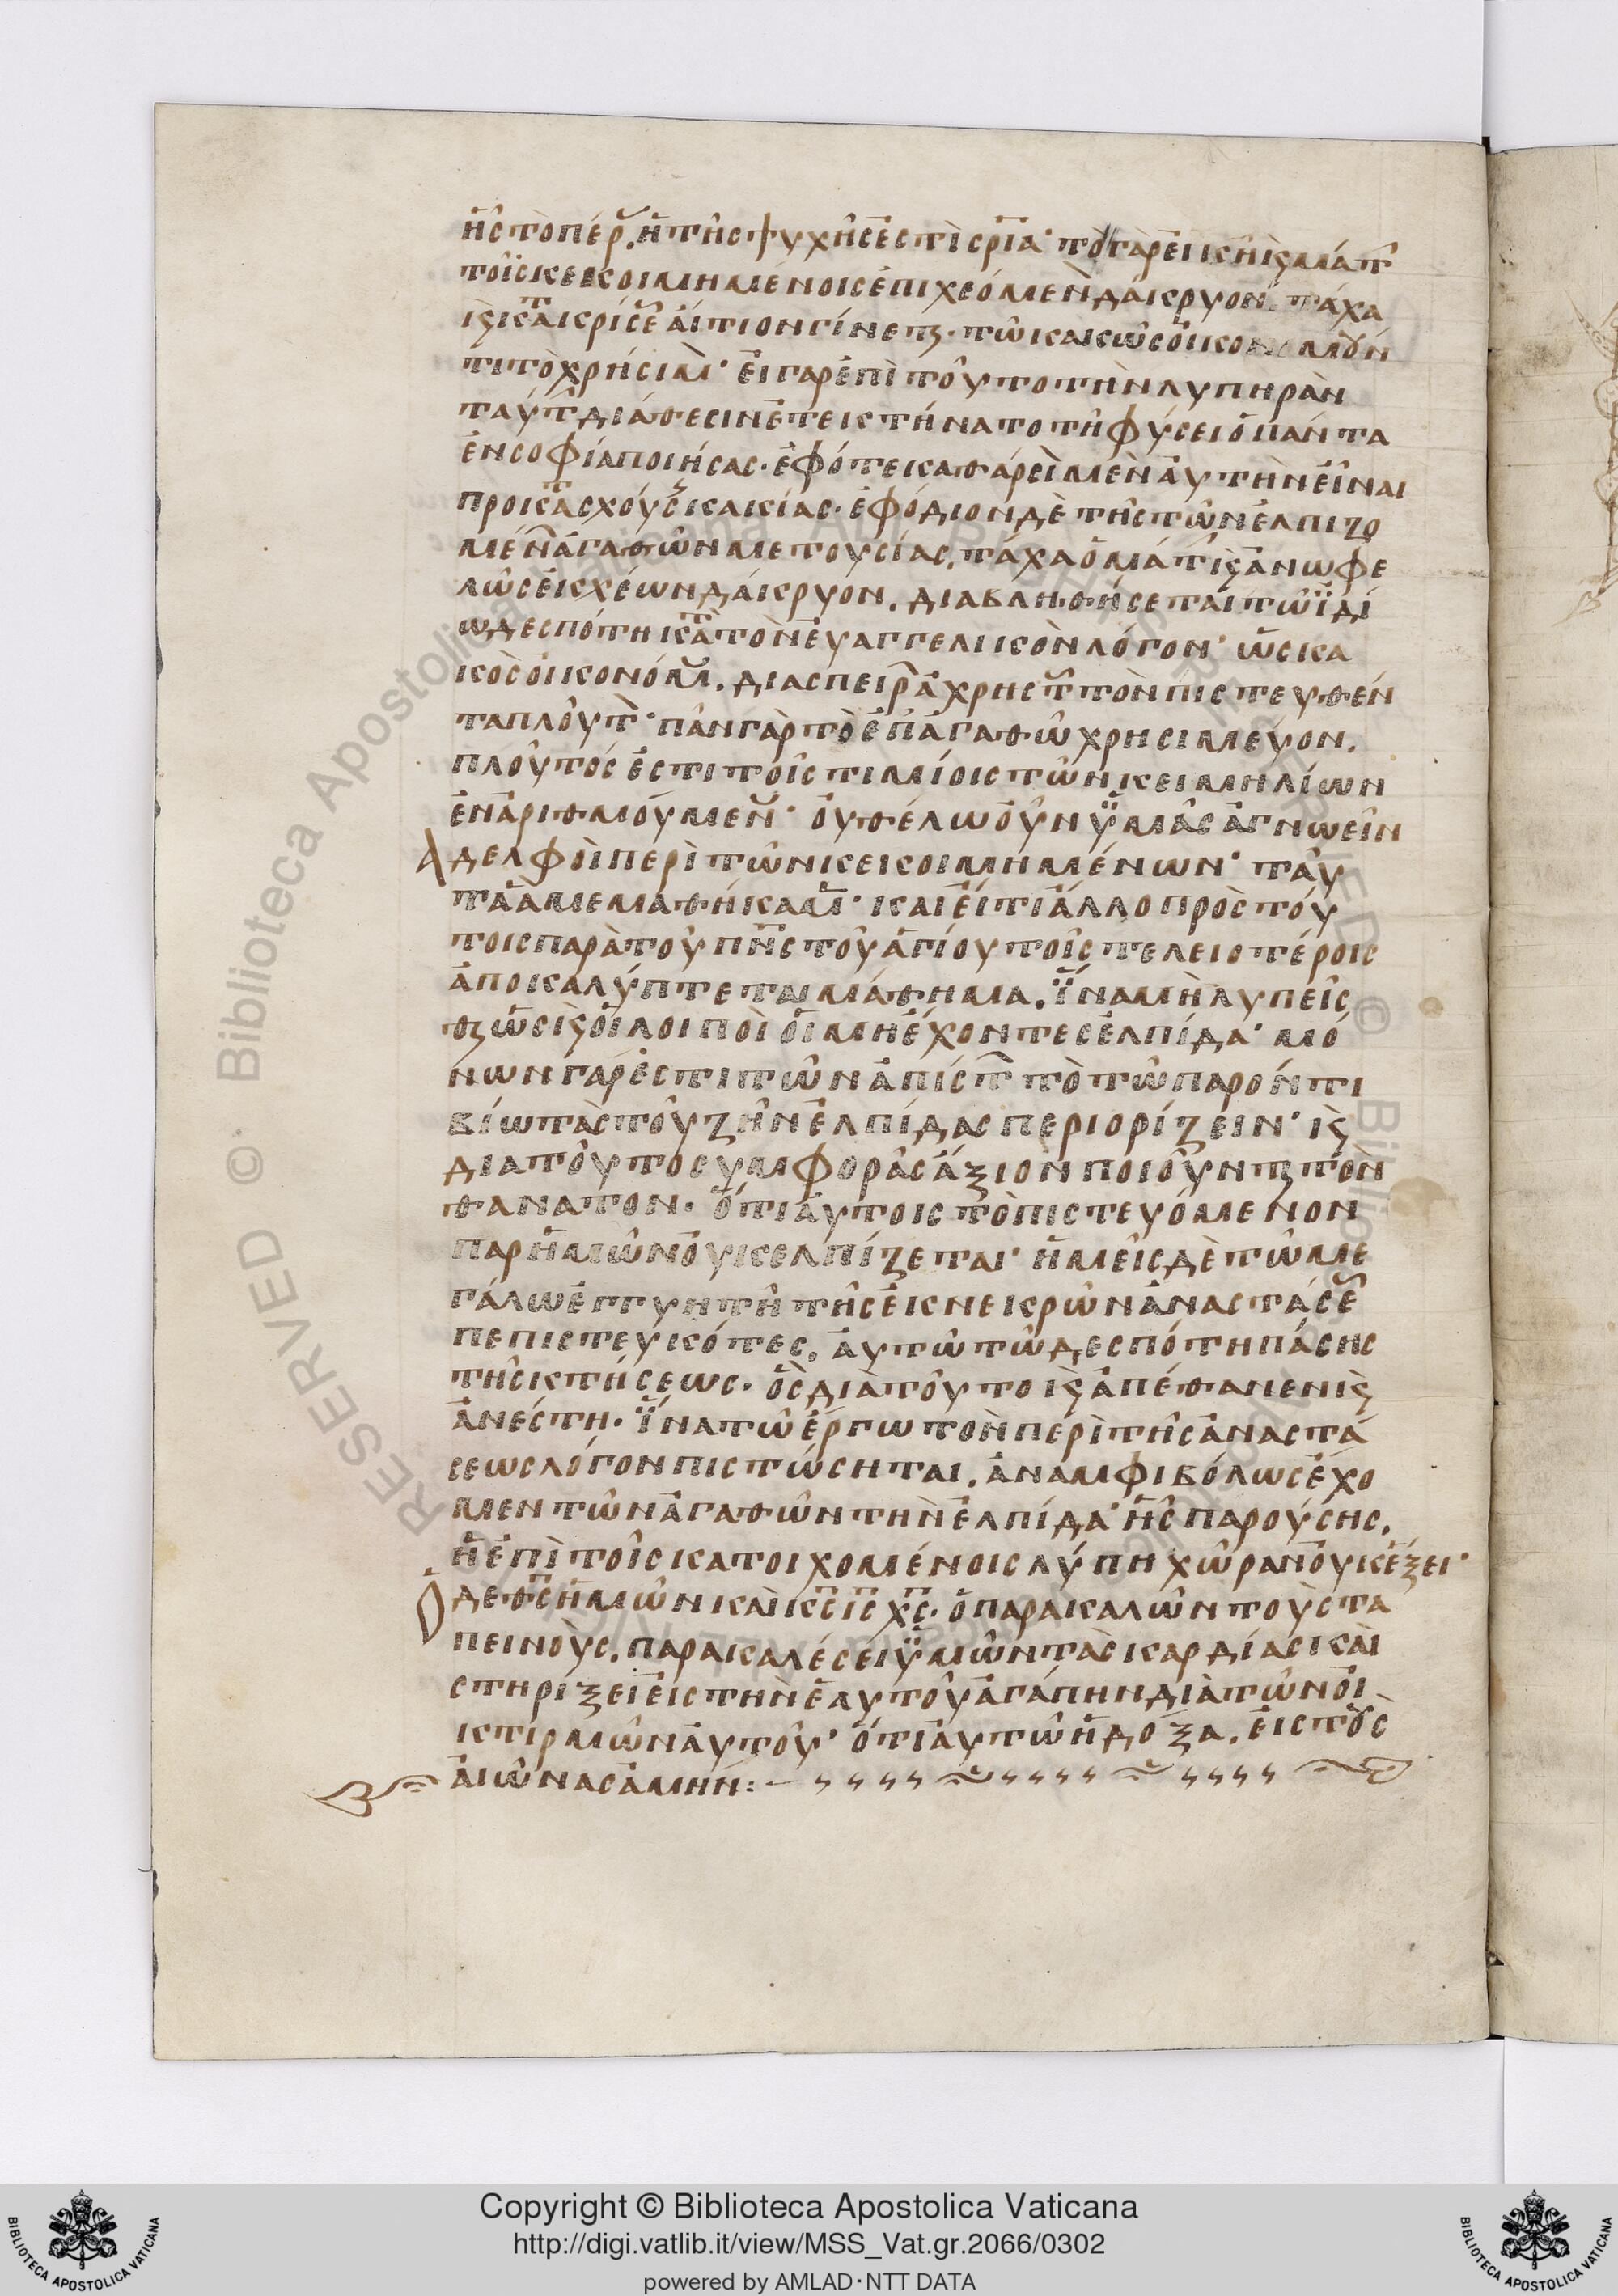 ἧς τὸ πέρ. ἡ τῆς ψυχῆς ἐστὶ σρία· τὸ γὰρ εἰκῆ ϗ μάτ
τοῖς κεκοιμημένοις ἐπιχεόμεν δάκρυον. τάχα
ϗ κατακρίσε αἴτιον γίνεται. τῶ κακῶς οἰκονομοῦν
τι τὸ χρήσιμ· εἰ γὰρ ἐπὶ τούτο τὴν λυπηρὰν
ταύτ διάθεσιν ἐτεκτήνατο τῆ φύσει ὁ πάντα
ἐν σοφία ποιήσας. ἐφ ότε καθάρσι μὲν αυτὴν εἶναι
προκατασχούσ κακίας. ἐφόδιον δὲ τῆς τῶν ἐλπιζο
μέν ἀγαθῶν μετουσίας. τάχα ὁ μάτ ϗ ἀνωφε
λῶς ἐκχέων δάκρυον. διαβληθήσεται τῶ ϊδί
ω δεσπότη κατὰ τὸν ἐυαγγελικὸν λόγον· ὡς κα
κὸς οἰκονόμ. διασπείρ ἀχρήστ τὸν πιστευθέν
τα πλούτ· πᾶν γὰρ τὸ ἐπ ἀγαθῶ χρησιμεύον.
πλοῦτός ἐστι τοῖς τιμίοις τῶν κειμηλίων
ἐναριθμούμεν· ὀυ θέλω οὖν ὑμᾶς ἀγνωεῖν
Αδελφοὶ περὶ τῶν κεκοιμημένων· ταῦ
τα ἁ μεμαθήκαμ· καὶ εἴ τι ἄλλο πρὸς τού
τοις παρὰ τοῦ πνς τοῦ ἁγίου τοῖς τελειοτέροις
ἀποκαλύπτεται μάθημα. ἵνα μὴ λυπεῖς
θαι ὡς ϗ οἱ λοιποὶ οἱ μὴ ἔχοντες ἐλπίδα· μό
νων γάρ ἐστι τῶν ἀπίστ τὸ τῶ παρόντι
βίω τὰς τοῦ ζῆν ἐλπίδας περιορίζειν· ϗ
διατοῦτο συμφορᾶς ἄξιον ποιοῦνται τὸν
θάνατον. ὅτι ἀυτοις τὸ πιστευόμενον
παρ ἡμῶν οὐκ ελπίζεται· ἡμεῖς δὲ τῶ με
γάλω ἐγγυητῆ τῆς ἐκ νεκρῶν ἀναστάσε
πεπιστευκότες. ἀυτῶ τῶ δεσπότη πάσης
τῆς κτήσεως. ὃς διὰ τοῦτο ϗ ἀπέθανεν ϗ
ἀνέστη. ἵνα τῶ ἔργω τὸν περὶ τῆς ἀναστά
σεως λόγον πιστώσηται. ἀναμφιβόλως ἔχο
μεν τῶν ἀγαθῶν τὴν ἐλπίδα· ἧς παρούσης.
ἡ ἐπὶ τοῖς κατοιχομένοις λύπη χῶραν οὐκ ἕξει·
Ὁ δε θς ἡμῶν καὶ κς ις χς. ὁ παρακαλῶν τοὺς τα
πεινοὺς. παρακαλέσει ὑμῶν τὰς καρδίας καὶ
στηρίξει εἰς τὴν ἑαυτοῦ ἀγάπην διὰ τῶν οἰ
κτιρμῶν ἀυτοῦ· ὅτι ἀυτῶ ἡ δόξα. εἰς τοὺς
ἀιῶνας ἀμήν:
Copyright © Biblioteca Apostolica Vaticana
http://digi.vatlib.it/view/MSS_Vat.gr.2066/0302
powered by AMLAD·NTT DATA
BIBLIOTECA APOSTOLICA VATICANA
BIBLIOTECA APOSTOLICA VATICANA